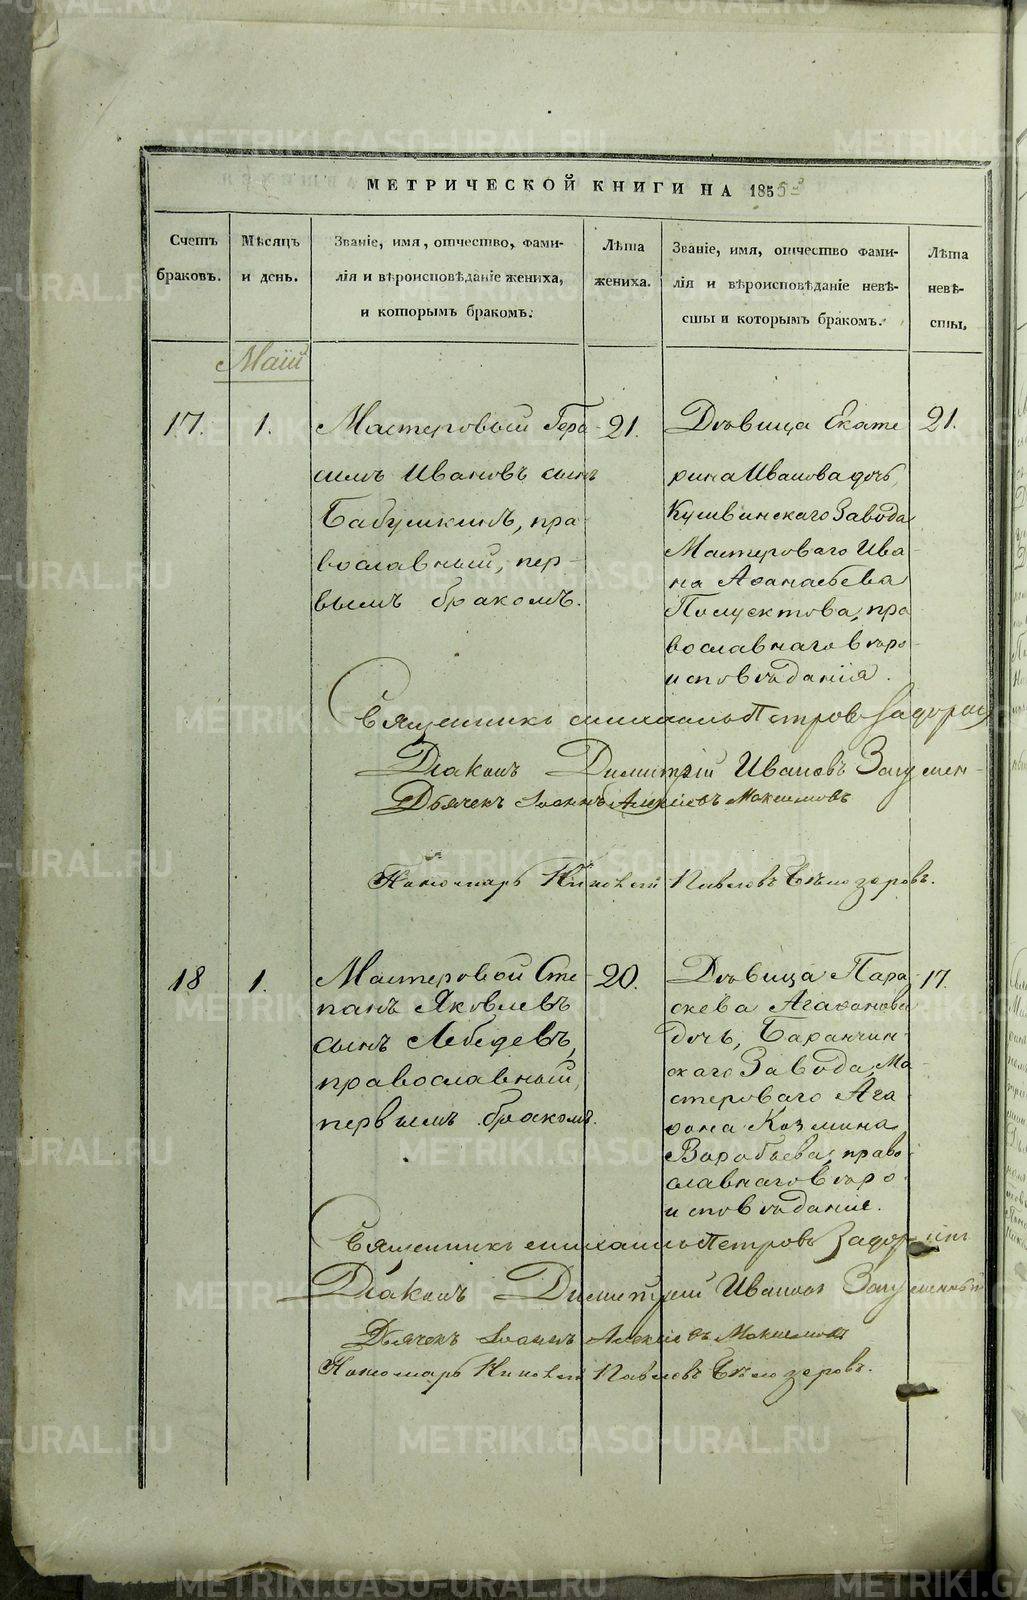 МЕТРИЧЕСКОЙ КНИГИ НА 185
Счетъ браковъ.
Мѣсяцъ и день.
Званіе, имя, отчество, фами-
лія и вѣроисповѣданіе жениха,
и которымъ бракомъ.
Лѣта
жениха.
Званіе, имя, отчество фами-
лія и вѣроисповѣданіе невѣ-
сты и которымъ бракомъ.
Лѣта
невѣ-
сты.
Маій
17.
1.
Мастеровый Гера-
симъ Ивановъ сынъ
Бабушкинъ, пра-
вославный, пер-
вымъ бракомъ.
21.
Дѣвица Екате
рина Иванова дочь,
Кушвинскаго Завода
Мастероваго Ива-
на Аѳанасьева
Полуектова, пра
вославнаго вѣро-
исповѣданія.
21.
Священникъ Михаилъ Петровъ
Діаконъ Димитрій Ивановъ
Дьячекъ Іоаннъ Алексіевъ Максимовъ
Пономарь Николай Павловъ Бѣлозеровъ.
18
1.
Мастеровой Сте-
панъ Яковлевъ
сынъ Лебедевъ,
православный,
первымъ бракомъ.
20.
Дѣвица Пара
скева Агаѳонова
дочь, Баранчин-
скаго Завода, Ма-
стероваго Ага-
ѳона Козмина
Воробьева, право-
славнаго вѣро-
исповѣданіе.
17.
Священникъ Михаилъ Петровъ
Діаконъ Димитрій Ивановъ
Дьячекъ Іоаннъ Алексіевъ Максимовъ
Пономарь Николай Павловъ Бѣлозеровъ.
METRIKI.GASO-URAL.RU